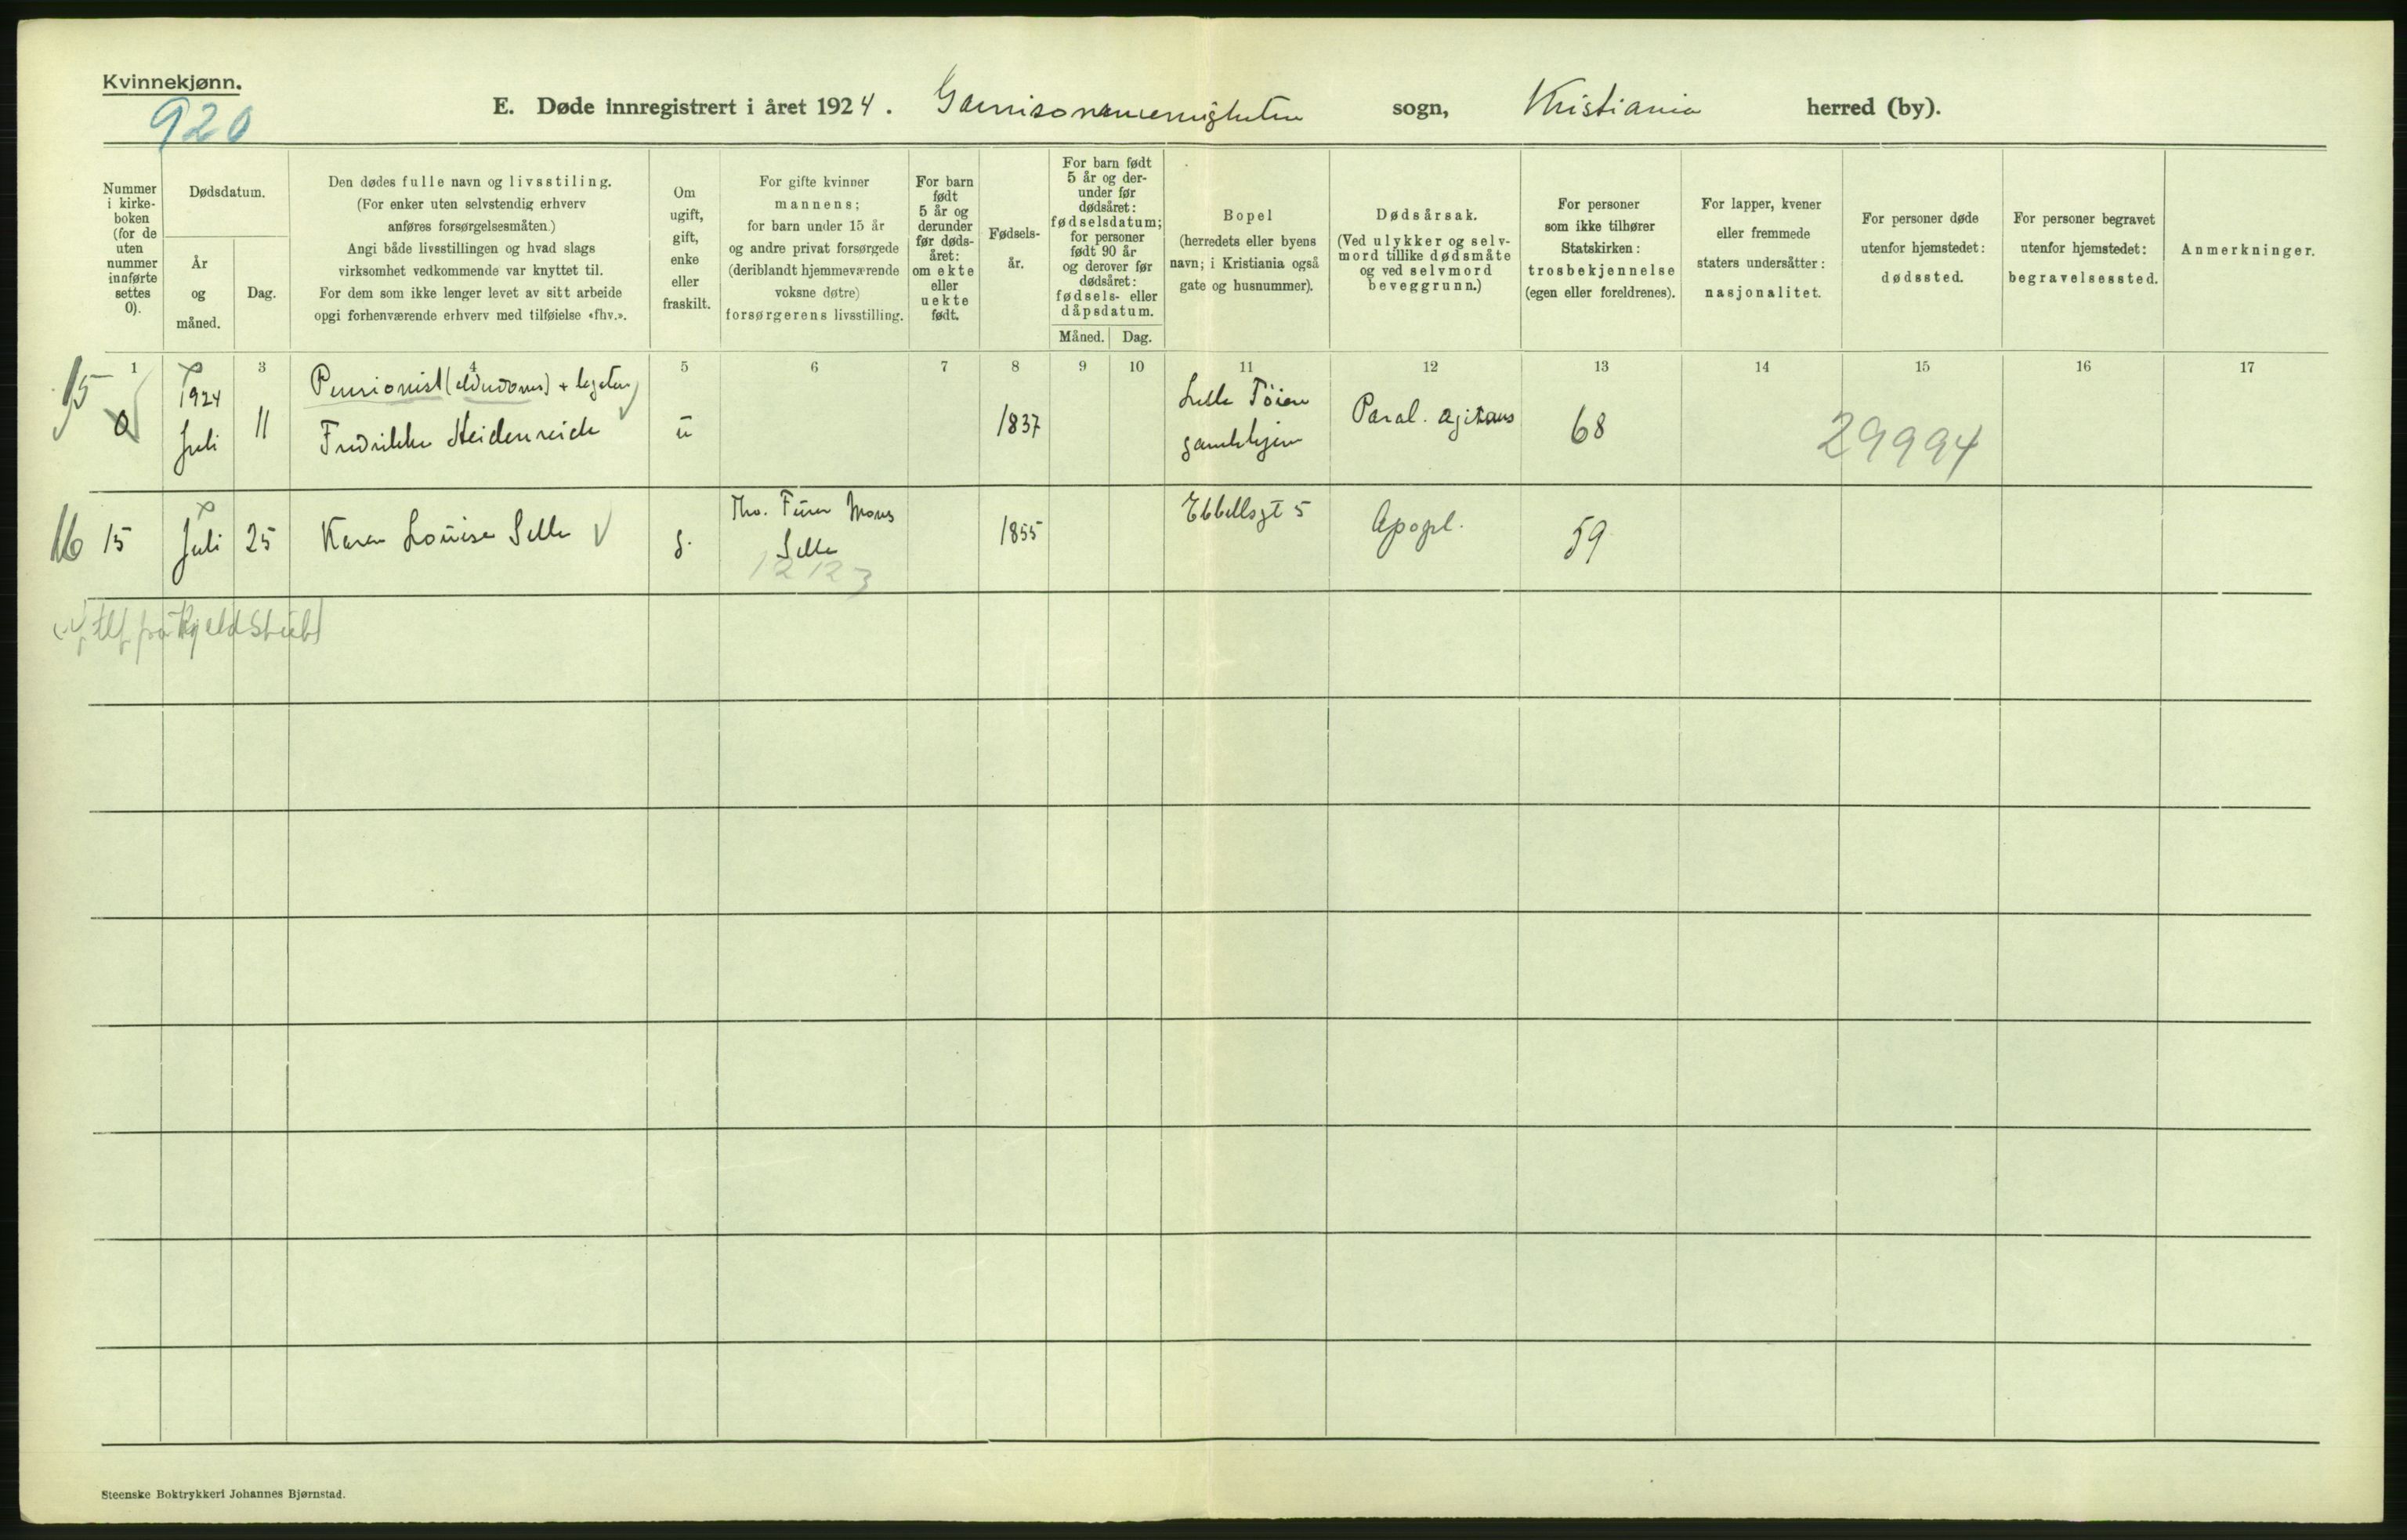 Kvinnekjønn.
920
E. Døde innregistrert i året 1924. Garnisonsmenigheten sogn, Kristiania herred (by).
Nummer i kirke-boken (for de uten nummer innførte settes 0).
Dødsdatum.
År og måned.
Dag.
Den dødes fulle navn og livsstiling.
(For enker uten selvstendig erhverv
anføres forsørgelsesmåten.)
Angi både livsstillingen og hvad slags
virksomhet vedkommende var knyttet til.
For dem som ikke lenger levet av sitt arbeide
opgi forhenværende erhverv med tilføielse «fhv.».
Om
ugift,
gift,
enke
eller
fraskilt.
For gifte kvinner
mannens;
for barn under 15 år
og andre privat forsørgede
(deriblandt hjemmeværende
voksne døtre)
forsørgerens livsstilling.
For barn
født
5 år og
derunder
før døds-
året:
om ekte
eller
uekte
født.
Fødsels-
år.
For barn født
5 år og der-
under før
dødsåret:
fødselsdatum;
for personer
født 90 år
og derover før
dødsåret:
fødsels- eller
dåpsdatum.
Måned. Dag.
Bopel
(herredets eller byens
navn; i Kristiania også
gate og husnummer).
Dødsårsak.
(Ved ulykker og selv-
mord tillike dødsmåte
og ved selvmord
beveggrunn.)
For personer
som ikke tilhører
Statskirken:
trosbekjennelse
(egen eller foreldrenes).
For lapper, kvener
eller fremmede
staters undersåtter:
nasjonalitet.
For personer døde
utenfor hjemstedet:
dødssted.
For personer begravet
utenfor hjemstedet:
begravelsessted.
Anmerkninger.
1 3 4 5 6 7 8 9 10 11 12 13 14 15 16 17
15 0 1924 Juli 11
Pensionist
Fredrikke Heidenreich
u 1837
Lille Tøien
gamlehjem
Paral. agitans 68 29994
16 15 Juli 25 Karen Louise Selle g.
Selle
12123
1855 Ebbellsgt 5 Apopl. 59
tlf fra Kjeld Stub
Steenske Boktrykkeri Johannes Bjørnstad.